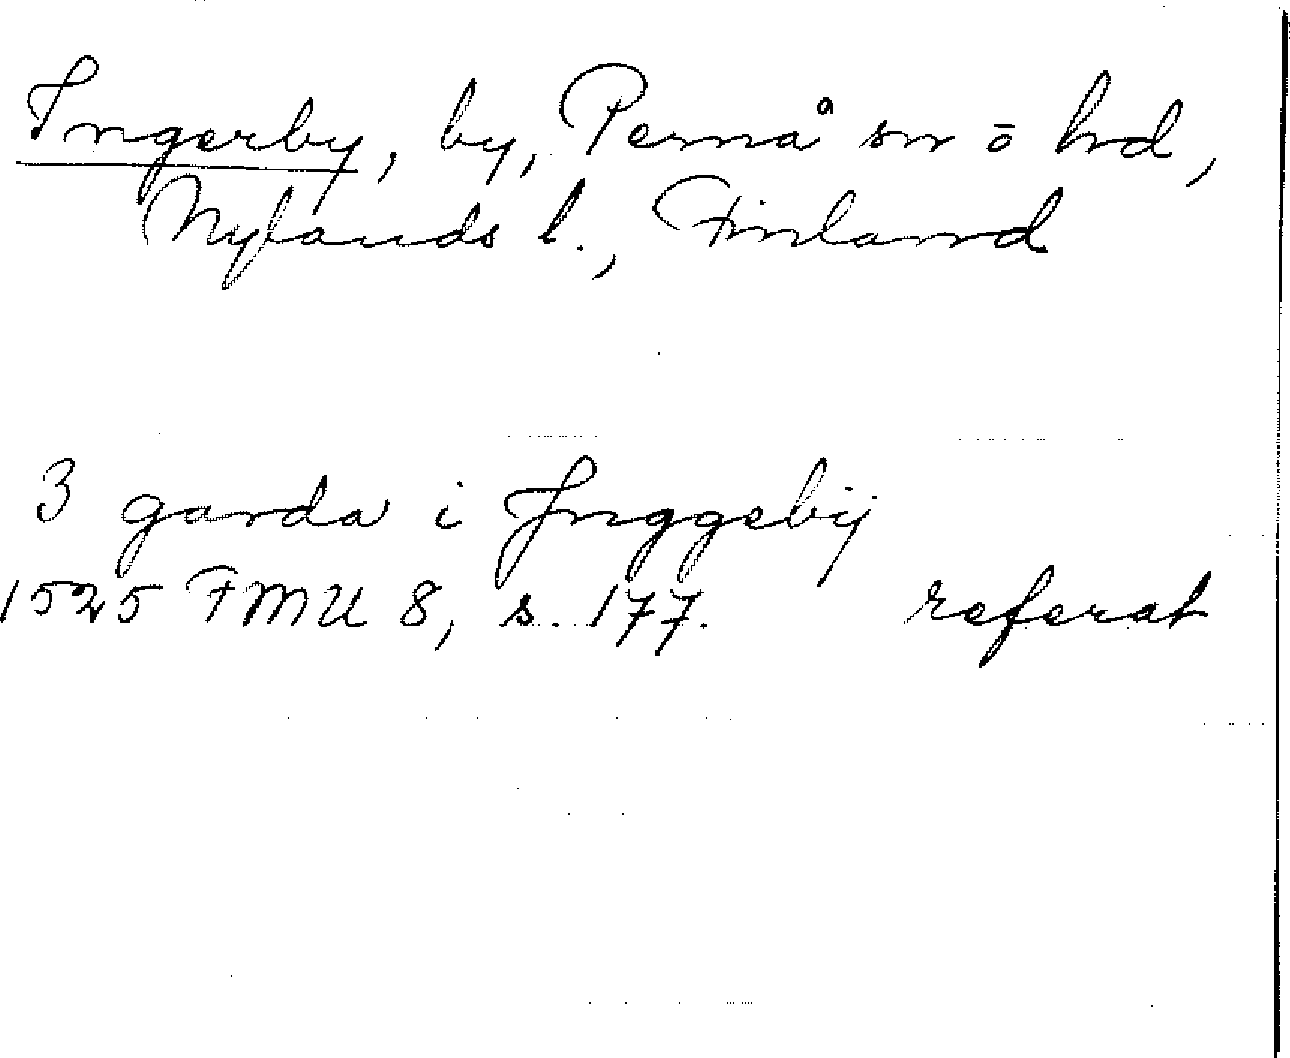 Ingerby, by, Pernå sn ō hd,
Nylands l., Finland
3 garda i Jnggebÿ
1525 FMU 8, s. 177. referat